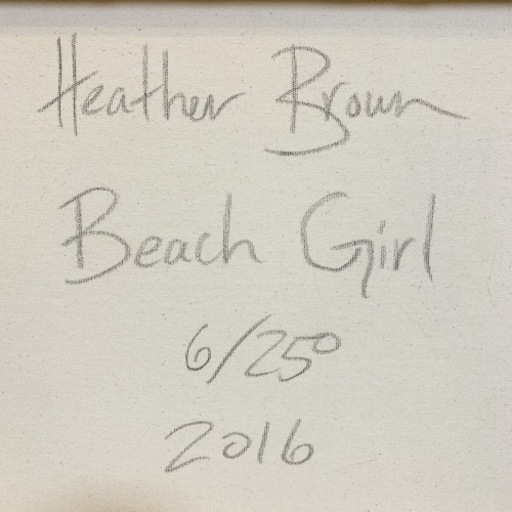 Heather Brown
Beach Girl
6/250
2016